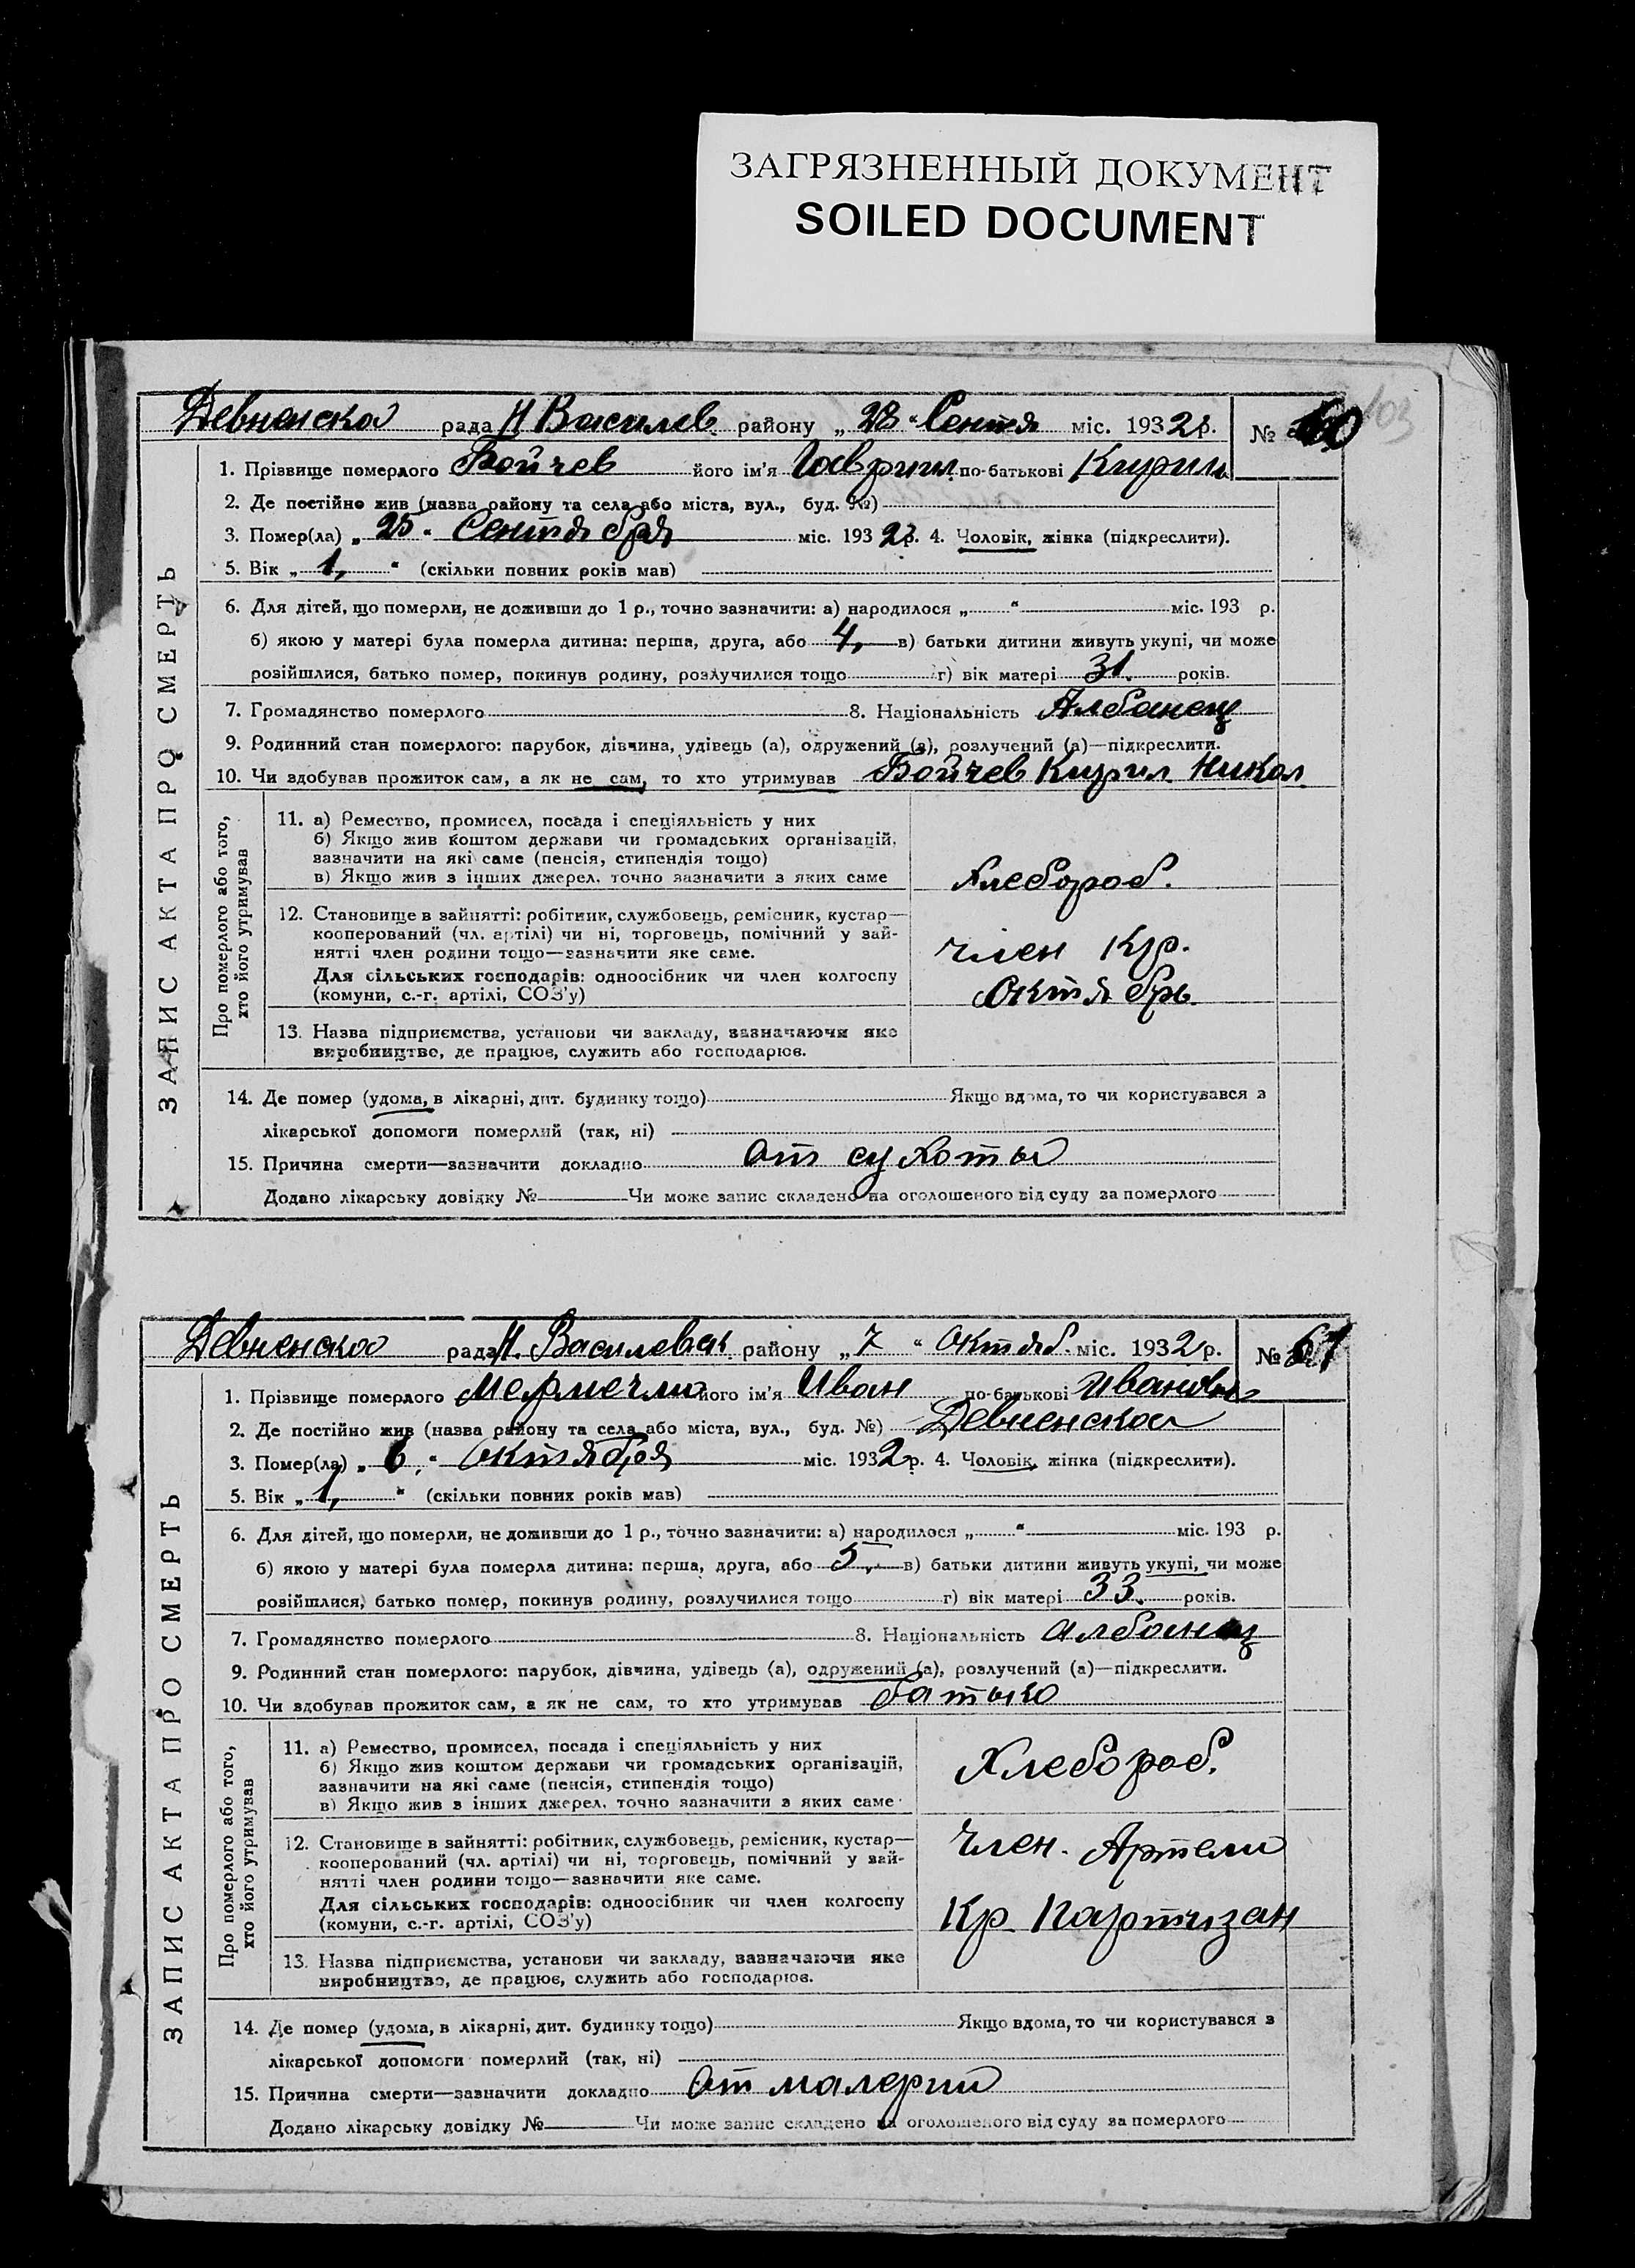 ЗАГРЯЗНЕННЫЙ ДОКУМЕНТ
SOILED DOCUMENT
103
Девненская рада Н Василев. району „28“ Сентя міс. 1932 р. № 60
ЗАПИС АКТА ПРО СМЕРТЬ
1. Прізвище померлого Бойчев його ім'я Гавриил по-батькові Кирил
2. Де постійно жив (назва району та села або міста, вул., буд. №)
3. Помер(ла) „25“ Сентября міс. 1932 р. 4. Чоловік, жінка (підкреслити).
5. Вік „1,“ (скільки повних років мав)
6. Для дітей, що померли, не доживши до 1 р., точно зазначити: а) народилося „ “ міс. 193 р.
б) якою у матері була померла дитина: перша, друга, або 4, в) батьки дитини живуть укупі, чи може
розійшлися, батько помер, покинув родину, розлучилися тощо г) вік матері 31. років.
7. Громадянство померлого 8. Національність Албанец
9. Родинний стан померлого: парубок, дівчина, удівець (а), одружений (а), розлучений (а)—підкреслити.
10. Чи здобував прожиток сам, а як не сам, то хто утримував Бойчев Кирил Никол
Про померлого або того, хто його утримував
11. а) Ремество, промисел, посада і спеціяльність у них
б) Якщо жив коштом держави чи громадських організацій,
зазначити на які саме (пенсія, стипендія тощо)
в) Якщо жив з інших джерел, точно зазначити з яких саме
Хлебороб.
12. Становище в зайнятті: робітник, службовець, ремісник, кустар—
кооперований (чл. артілі) чи ні, торговець, помічний у зай-
нятті член родини тощо—зазначити яке саме.
Для сільських господарів: одноосібник чи член колгоспу
(комуни, с.-г. артілі, СОЗ'у)
член Кр.
Октябрь.
13. Назва підприємства, установи чи закладу, зазначаючи яке
виробництво, де працює, служить або господарює.
14. Де помер (удома, в лікарні, дит. будинку тощо) Якщо вдома, то чи користувався з
лікарської допомоги померлий (так, ні)
15. Причина смерти—зазначити докладно от сухоты
Додано лікарську довідку № Чи може запис складено на оголошеного від суду за померлого
Девненская рада Н. Василевск. району „7“ Октяб. міс. 1932 р. № 61
ЗАПИС АКТА ПРО СМЕРТЬ
1. Прізвище померлого Мермечли його ім'я Иван по-батькові Иванович
2. Де постійно жив (назва району та села або міста, вул., буд. №) Девненская
3. Помер(ла) „6,“ октября міс. 1932 р. 4. Чоловік, жінка (підкреслити).
5. Вік „1,“ (скільки повних років мав)
6. Для дітей, що померли, не доживши до 1 р., точно зазначити: а) народилося „ “ міс. 193 р.
б) якою у матері була померла дитина: перша, друга, або 5, в) батьки дитини живуть укупі, чи може
розійшлися, батько помер, покинув родину, розлучилися тощо г) вік матері 33. років.
7. Громадянство померлого 8. Національність албанец
9. Родинний стан померлого: парубок, дівчина, удівець (а), одружений (а), розлучений (а)—підкреслити.
10. Чи здобував прожиток сам, а як не сам, то хто утримував батько
Про померлого або того, хто його утримував
11. а) Ремество, промисел, посада і спеціяльність у них
б) Якщо жив коштом держави чи громадських організацій,
зазначити на які саме (пенсія, стипендія тощо)
в) Якщо жив з інших джерел, точно зазначити з яких саме
Хлебороб.
12. Становище в зайнятті: робітник, службовець, ремісник, кустар—
кооперований (чл. артілі) чи ні, торговець, помічний у зай-
нятті член родини тощо—зазначити яке саме.
Для сільських господарів: одноосібник чи член колгоспу
(комуни, с.-г. артілі, СОЗ'у)
член. Артели
Кр Партизан
13. Назва підприємства, установи чи закладу, зазначаючи яке
виробництво, де працює, служить або господарює.
14. Де помер (удома, в лікарні, дит. будинку тощо) Якщо вдома, то чи користувався з
лікарської допомоги померлий (так, ні)
15. Причина смерти—зазначити докладно От малерии
Додано лікарську довідку № Чи може запис складено на оголошеного від суду за померлого